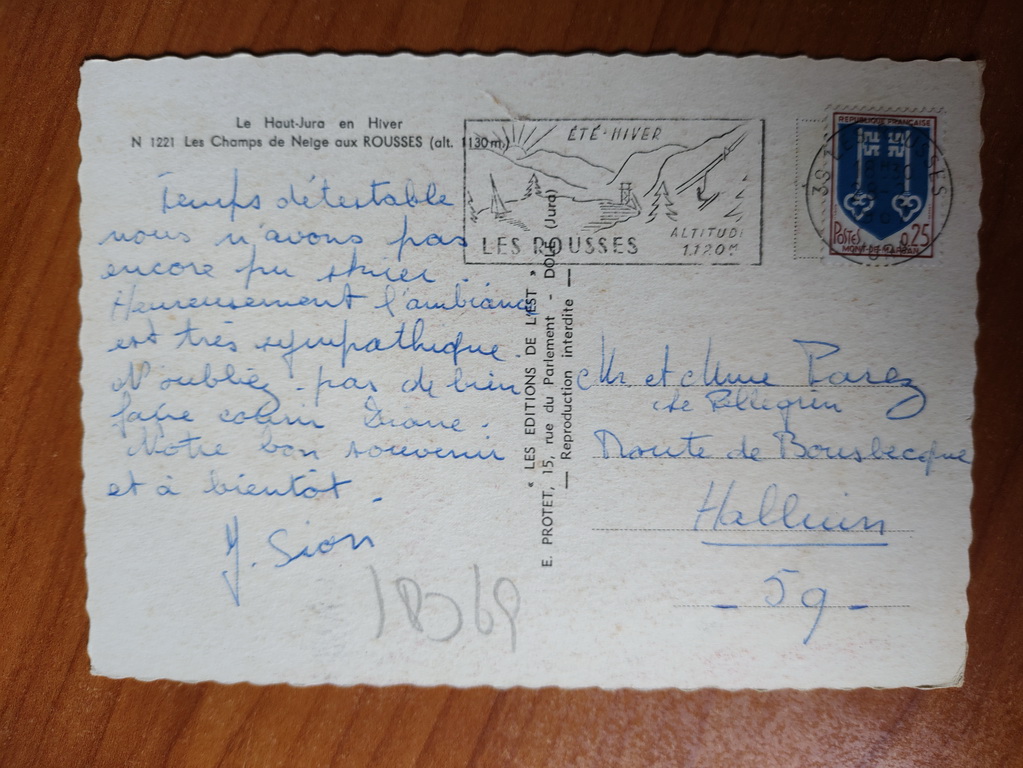 Le Haut-Jura en Hiver
N 1221 Les Champs de Neige aux ROUSSES (alt. 1130 m.)
Temps détestable
nous n'avons pas
encore pu skier.
Heureusement l'ambiance
est très sympathique.
N'oubliez pas de bien
faire courir Diane.
Notre bon souvenir
et à bientôt.
Y. Sion
« LES EDITIONS DE L'EST »
E. PROTET, 15, rue du Parlement - DOLE (Jura)
— Reproduction interdite —
ÉTÉ-HIVER
LES ROUSSES
ALTITUDE
1.120 M
REPUBLIQUE FRANÇAISE
POSTES
0,25
MONT-DE-MARSAN
39 LES ROUSSES
Mr et Mme Parez
Le Pellegrin
Route de Bousbecque
Halluin
- 59 -